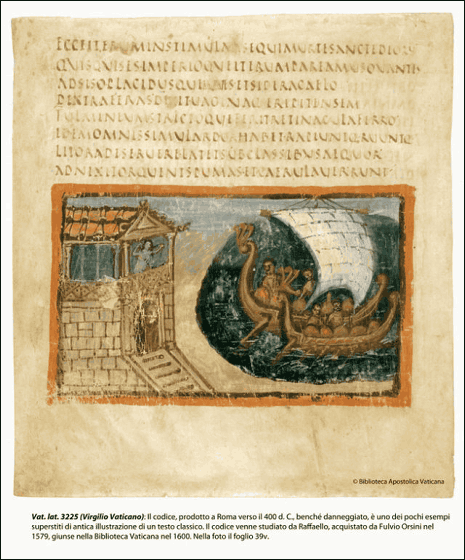 ECCEITERUMINSTIMULATSEQUIMURTESANCTEDEORU
QUISQUISESIMPERIOQUEITERUMPAREMUSOVANTES
ADSISOPLACIDUSQUE IUVESETSIDERACAELO
DEXTRAFERASDIXITVAGINAQUEERIPITENSEM
FULMINEUMSTRICTOQUEFERITRETINACULAFERRO
IDEMOMNISSIMULARDORHABETRAPIUNTQRUUNTQ
LITORADESERUERELATETSUBCLASSIBUSAEQUOR
ADNIXITORQUENTSPUMASETCAERULAVERRUNT
© Biblioteca Apostolica Vaticana
Vat. lat. 3225 (Virgilio Vaticano): Il codice, prodotto a Roma verso il 400 d. C., benché danneggiato, è uno dei pochi esempi
superstiti di antica illustrazione di un testo classico. Il codice venne studiato da Raffaello, acquistato da Fulvio Orsini nel
1579, giunse nella Biblioteca Vaticana nel 1600. Nella foto il foglio 39v.